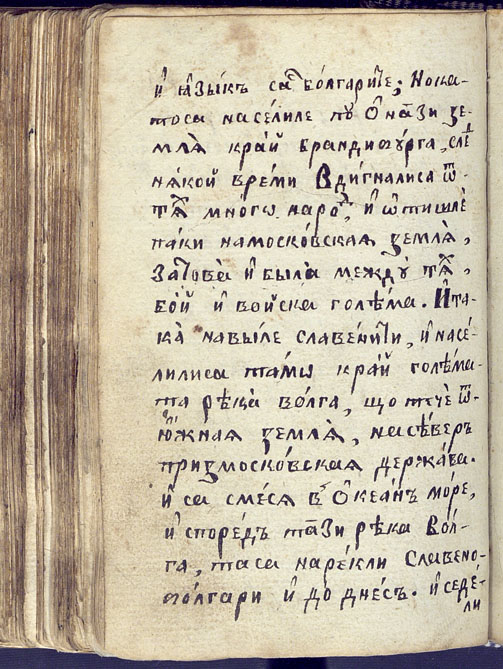 и҆ ѩ҆зы́къ са бо́лгарите; Но ка-
то са насе́лиле пу Ѻ҆наѕи зе-
млѧ̀ кра́й брандибꙋ́рга, слѐ
нѧ́кой вре́ми Вди́гналиса ѿ
тѧ много наро, и҆ ѿтишлѐ
па́ки на моско́вская землѧ̀,
За това̀ и҆ была̀ междꙋ̀ тѧ,
бо́й и҆ во́йска голѣ́ма. И҆ та-
ка̀ навы́ле славе́нити, и҆ насе́-
лилиса та́мѡ кра́й голѣ́ма-
та рѣка̀ во́лга, що течѐ ѿ
ю҆́жная землѧ̀, на сѣ́веръ
през моско́вская держа́ва.
и҆ са смѐся въ Ѻ҆кеа́нъ мо́ре,
и҆ споре́дъ таѕи рѣка Во́л-
га, та са наре́кли Славено-
болгари и҆ до дне́съ. и҆ седе́-
ли